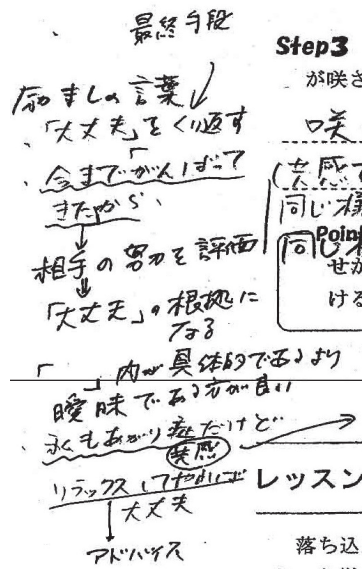 最終手段
励ましの言葉
「大丈夫」をくり返す
「今までがんばって
きたから、
相手の努力を評価
「大丈夫」の根拠に
なる
「　」内が具体的であるより
曖昧である方が良い
私もあがり症だけど
共感
リラックスしてやれば
大丈夫
アドバイス
Step3
が咲さ
咲
(共感
同じ様
同じ
Poin
せか
ける
レッスン
落ち込